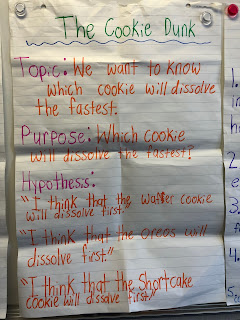 The Cookie Dunk
Topic: We want to know
which cookie will dissolve
the fastest.
Purpose: Which cookie
will dissolve the fastest?
Hypothesis:
"I think that the waffer cookie
will dissolve first."
"I think that the oreos will
dissolve first"
"I think that the Shortcake
cookie will dissave first"
1.
2
3.
4.
5.